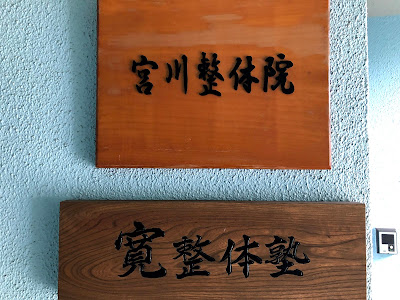 宮川整体院
寛整体塾